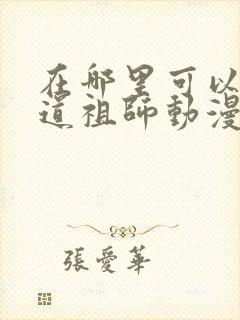 在哪里可以
道祖師動漫
張愛華